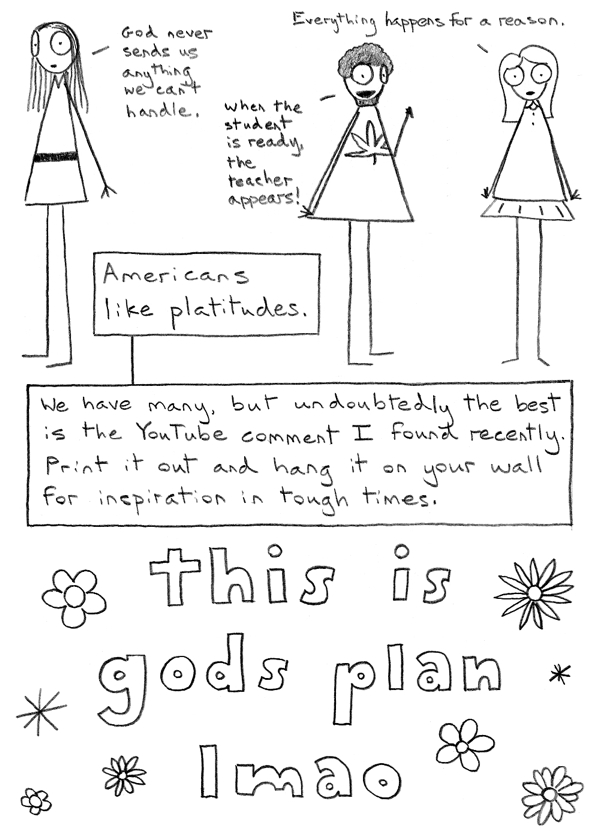 God never
sends us
anything
we can't
handle.
Everything happens for a reason.
When the
student
is ready,
the
teacher
appears!
Americans
like platitudes.
We have many, but undoubtedly the best
is the YouTube comment I found recently.
Print it out and hang it on your wall
for inspiration in tough times.
this is
gods plan
lmao